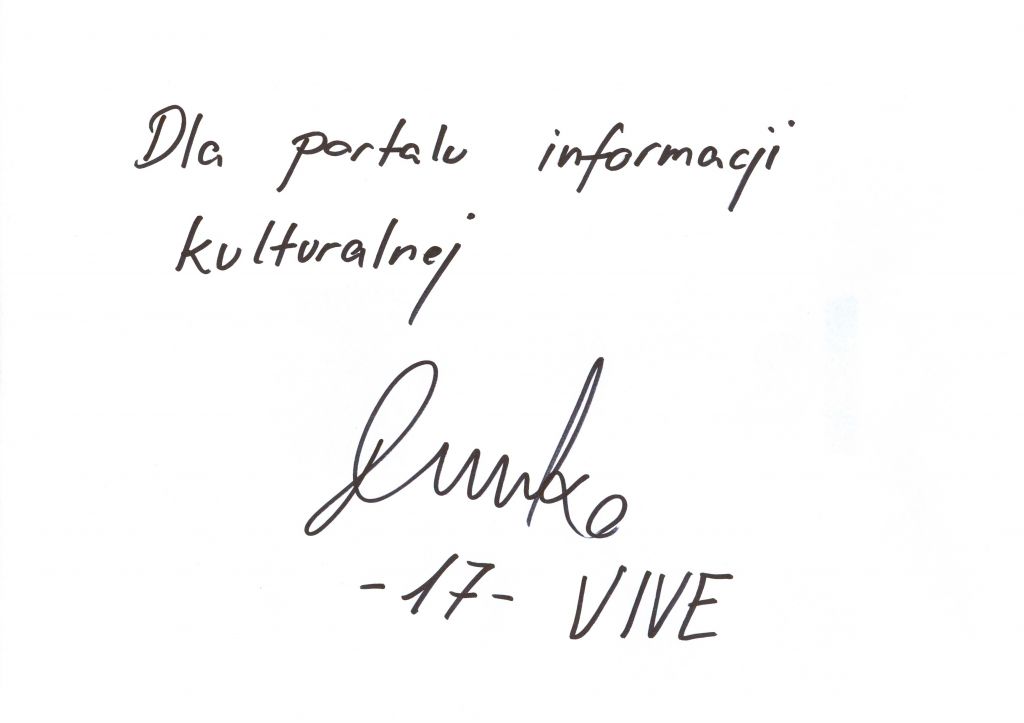 Dla portalu informacji
kulturalnej
-17- VIVE